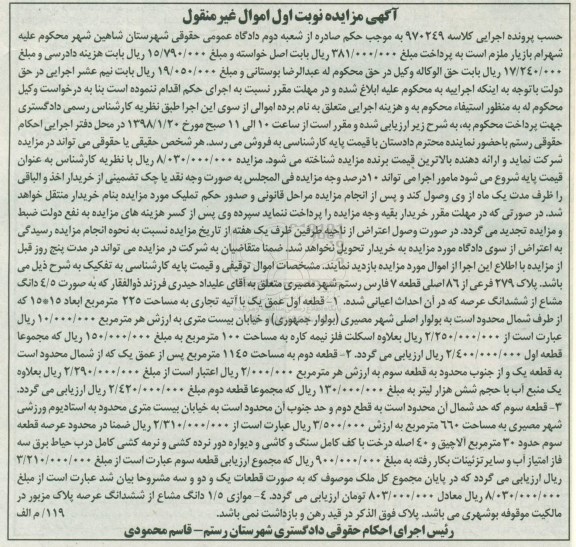 آگهی مزایده نوبت اول اموال غیرمنقول
حسب پرونده اجرایی کلاسه ۹۷۰۲۴۹ به موجب حکم صادره از شعبه دوم دادگاه عمومی حقوقی شهرستان شاهین شهر محکوم علیه
شهرام بازیار ملزم است به پرداخت مبلغ ۳۸۱/۰۰۰/۰۰۰ ریال بابت اصل خواسته و مبلغ ۱۵/۷۹۰/۰۰۰ ریال بابت هزینه دادرسی و مبلغ
۱۷/۲۴۰/۰۰۰ ریال بابت حق الوکاله وکیل در حق محکوم له عبدالرضا بوستانی و مبلغ ۱۹/۰۵۰/۰۰۰ ریال بابت نیم عشر اجرایی در حق
دولت باتوجه به اینکه اجراییه به محکوم علیه ابلاغ شده و در مهلت مقرر نسبت به اجرای حکم اقدام ننموده است بنا به درخواست وکیل
محکوم له به منظور استیفاء محکوم به و هزینه اجرایی متعلق به نام برده اموالی از سوی این اجرا طبق نظریه کارشناس رسمی دادگستری
جهت پرداخت محکوم به، به شرح زیر ارزیابی شده و مقرر است از ساعت ۱۰ الی ۱۱ صبح مورخ ۱۳۹۸/۱/۲۰ در محل دفتر اجرای احکام
حقوقی رستم باحضور نماینده محترم دادستان با قیمت پایه کارشناسی به فروش می رسد. هر شخص حقیقی یا حقوقی می تواند در مزایده
شرکت نماید و ارائه دهنده بالاترین قیمت برنده مزایده شناخته می شود. مزایده ۸/۰۳۰/۰۰۰/۰۰۰ ریال با نظریه کارشناس به عنوان
قیمت پایه شروع می شود مامور اجرا می تواند ۱۰درصد وجه مزایده فی المجلس به صورت وجه نقد یا چک تضمینی از خریدار اخذ و الباقی
را ظرف مدت یک ماه از وی وصول کند و پس از انجام مزایده مراحل قانونی و صدور حکم تملیک مورد مزایده بنام خریدار منتقل خواهد
شد. در صورتی که در مهلت مقرر خریدار بقیه وجه مزایده را پرداخت ننماید سپرده وی پس از کسر هزینه های مزایده به نفع دولت ضبط
و مزایده تجدید می گردد. در صورت وصول اعتراض از ناحیه طرفین ظرف یک هفته از تاریخ مزایده نسبت به نحوه انجام مزایده رسیدگی
به اعتراض از سوی دادگاه مورد مزایده به خریدار تحویل نخواهد شد. ضمنا متقاضیان به شرکت در مزایده می تواند در مدت پنج روز قبل
از مزایده با اطلاع این اجرا از اموال مورد مزایده بازدید نمایند. مشخصات اموال توقیفی و قیمت پایه کارشناسی به تفکیک به شرح ذیل می
باشد. پلاک ۲۷۹ فرعی از ۸۶ اصلی قطعه ۷ فارس رستم شهر مصیری متعلق به آقای علیداد حیدری فرزند ذوالفقار که به صورت ۴/۵ دانگ
مشاع از ششدانگ عرصه که در آن احداث اعیانی شده. ۱- قطعه اول عمق یک با آتیه تجاری به مساحت ۲۲۵ مترمربع ابعاد ۱۵*۱۵ که
از طرف شمال محدود است به بولوار اصلی شهر مصیری (بولوار جمهوری) و خیابان بیست متری به ارزش هر مترمربع ۱۰/۰۰۰/۰۰۰ ریال
عبارت است از ۲/۲۵۰/۰۰۰/۰۰۰ ریال بعلاوه اسکلت فلز نیمه کاره به مساحت ۱۰۰ مترمربع به مبلغ ۱۵۰/۰۰۰/۰۰۰ ریال که مجموعا
قطعه اول ۲/۴۰۰/۰۰۰/۰۰۰ ریال ارزیابی می گردد. ۲- قطعه دوم به مساحت ۱۱۴۵ مترمربع پس از عمق یک که از شمال محدود است
به قطعه یک و از جنوب محدود به قطعه سوم به ارزش هر مترمربع ۲/۰۰۰/۰۰۰ ریال اعتبار است از مبلغ ۲/۲۹۰/۰۰۰/۰۰۰ ریال بعلاوه
یک منبع آب با حجم شش هزار لیتر به مبلغ ۱۳۰/۰۰۰/۰۰۰ ریال که مجموعا قطعه دوم مبلغ ۲/۴۲۰/۰۰۰/۰۰۰ ریال ارزیابی می گردد.
۳- قطعه سوم که حد شمال آن محدود است به قطع دوم و حد جنوب آن محدود است به خیابان بیست متری محدود به استادیوم ورزشی
شهر مصیری به مساحت ۶۶۰ مترمربع به ارزش ۳/۵۰۰/۰۰۰ ریال عبارت است از ۲/۳۱۰/۰۰۰/۰۰۰ ریال ضمنا در محدود عرصه قطعه
سوم حدود ۳۰ مترمربع آلاچیق و ۴۰ اصله درخت با کف کامل سنگ و کاشی و دیواره دور نرده کشی و نرمه کشی کامل درب حیاط برق سه
فاز امتیاز آب و سایر تزئینات بکار رفته به مبلغ ۹۰۰/۰۰۰/۰۰۰ ریال که مجموع ارزیابی قطعه سوم عبارت است از مبلغ ۳/۲۱۰/۰۰۰/۰۰۰
ریال ارزیابی می گردد که در پایان مجموع کل ملک موصوف که به صورت قطعات یک و دو و سه مشروحا بیان شد عبارت است از مبلغ
۸/۰۳۰/۰۰۰/۰۰۰ ریال معادل ۸۰۳/۰۰۰/۰۰۰ تومان ارزیابی می گردد. ۴- موازی ۱/۵ دانگ مشاع از ششدانگ عرصه پلاک مزبور در
مالکیت موقوفه بوشهری می باشد. پلاک فوق الذکر در قید رهن و بازداشت نمی باشد. ۱۱۹/ م الف
رئیس اجرای احکام حقوقی دادگستری شهرستان رستم- قاسم محمودی